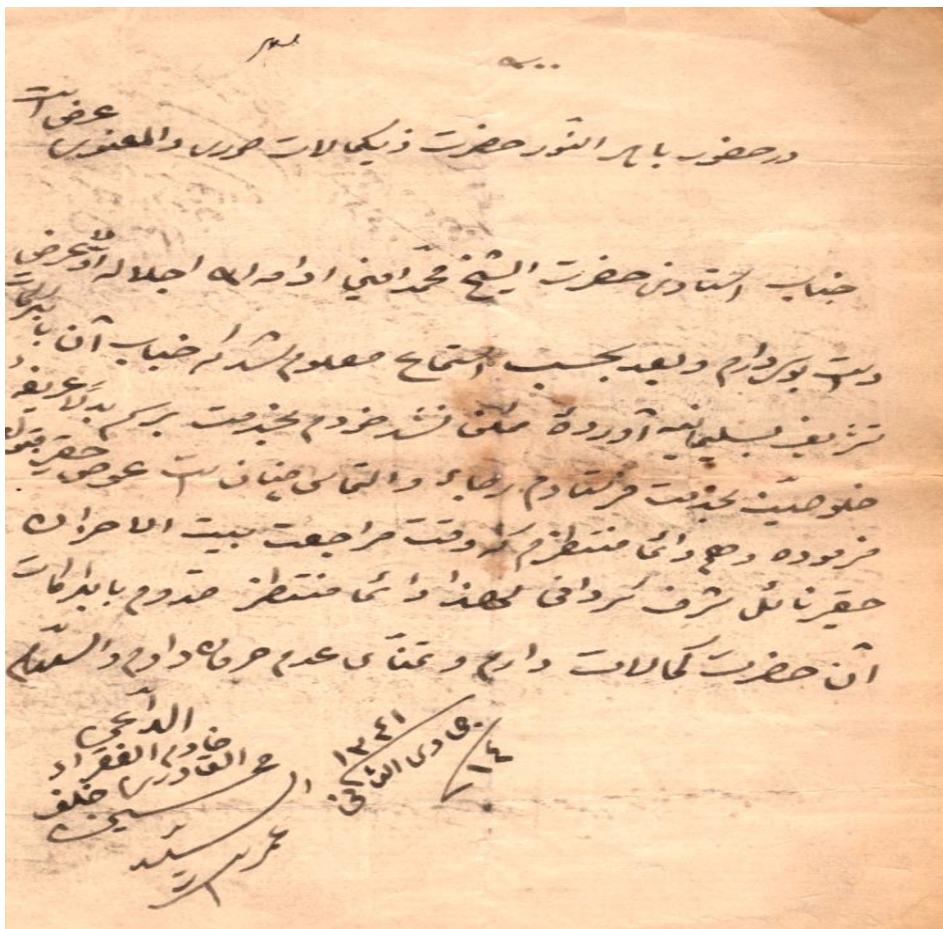 در حضور باهر النور حضرت ذیکمالات صوری والمعنوی عرض است
جناب استادی حضرت الشیخ محمد امینی ادامه الله اجلاله اولا عرض
دست بوسی دارم وبعد بحسب استماع معلوم شد که جناب آن با برکات
تشریف بسلیمانیه آورده ممکن نشد خودم بخدمت برسم بدلا عریضه
خلوصیت بخدمت فرستادم رجاء والتماس چنان است عوض حقیر قبول
فرموده وهم دائما منتظرم که وقت مراجعت بیت الاحزان
حقیر نائل شرف گردانی لهذا دائما منتظر قدوم با برکات
آن حضرت کمالات دارم وتمنای عدم حرمان دارم والسلام
١٤ جمادی الثانی ١٣٤١
الداعی
خادم الفقراء
القادری خلف
السید
حسین